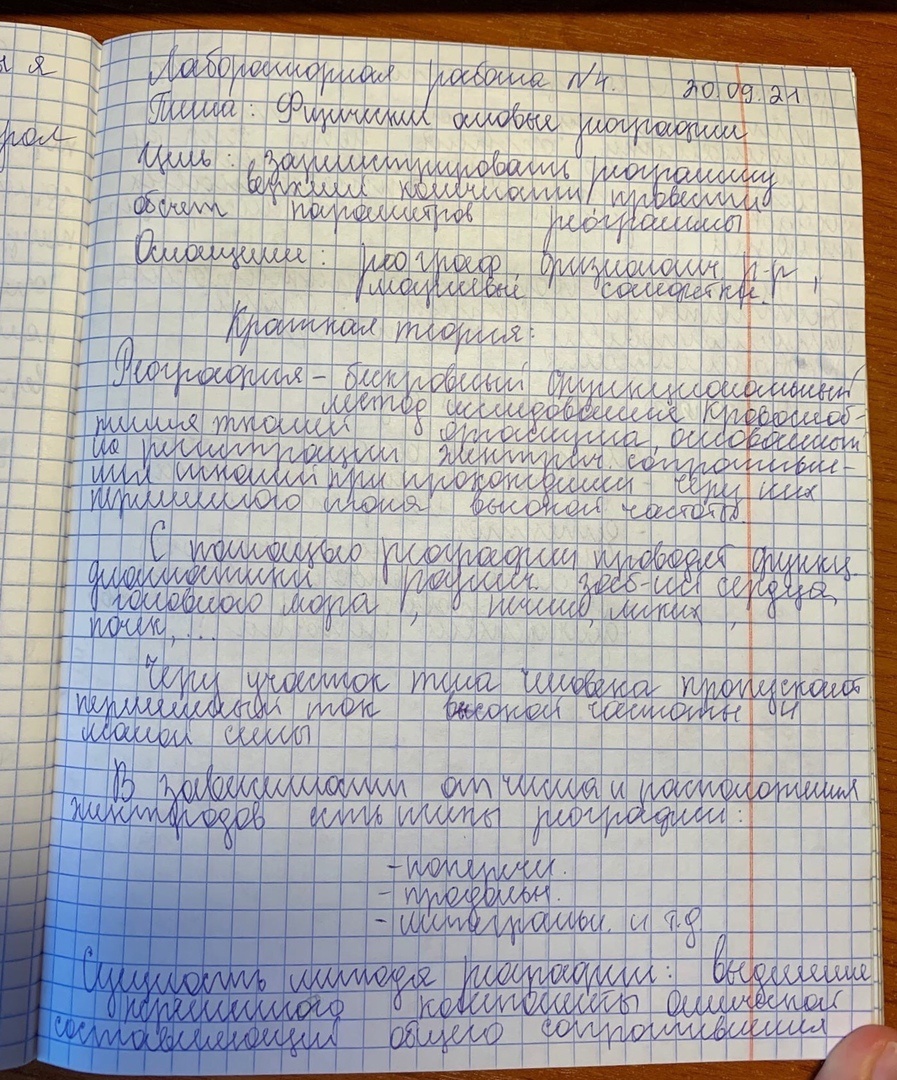 ы я
рал
Лабораторная работа №4. 20.09.21
Тема: Физические основы реографии
Цель: зарегистрировать реограмму
верхней конечности, провести
обсчет параметров реограммы
Оснащение: реограф, физиологич. р-р,
марлевые салфетки.
Краткая теория:
Реография – бескровный функциональный
метод исследования кровоснаб-
жения тканей организма, основанный
на регистрации электрич. сопротивле-
ния тканей при прохождении через них
переменного тока высокой частоты.
С помощью реографии проводят функц.
диагностики различ. заб-ий сердца,
головного мозга, печени, легких,
почек, ...
Через участок тела человека пропускают
переменный ток высокой частоты и
малой силы
В зависимости от числа и расположения
электродов есть типы реографии:
- поперечн.
- продольн.
- интегральн. и т.д
Сущность метода реографии: выделение
переменного компоненты омической
составляющей общего сопротивления